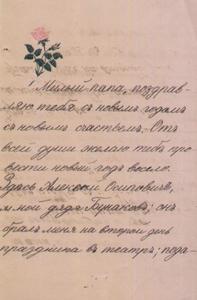 Милый папа, поздрав-
ляю тебя съ новымъ годомъ
съ новымъ счастьемъ. Отъ
всей души желаю тебѣ про
вести новый годъ весело.
Здѣсь Алексѣй Осиповичъ,
и мой дядя Бунаковъ; онъ
бралъ меня на второй день
праздника въ театръ; пода-